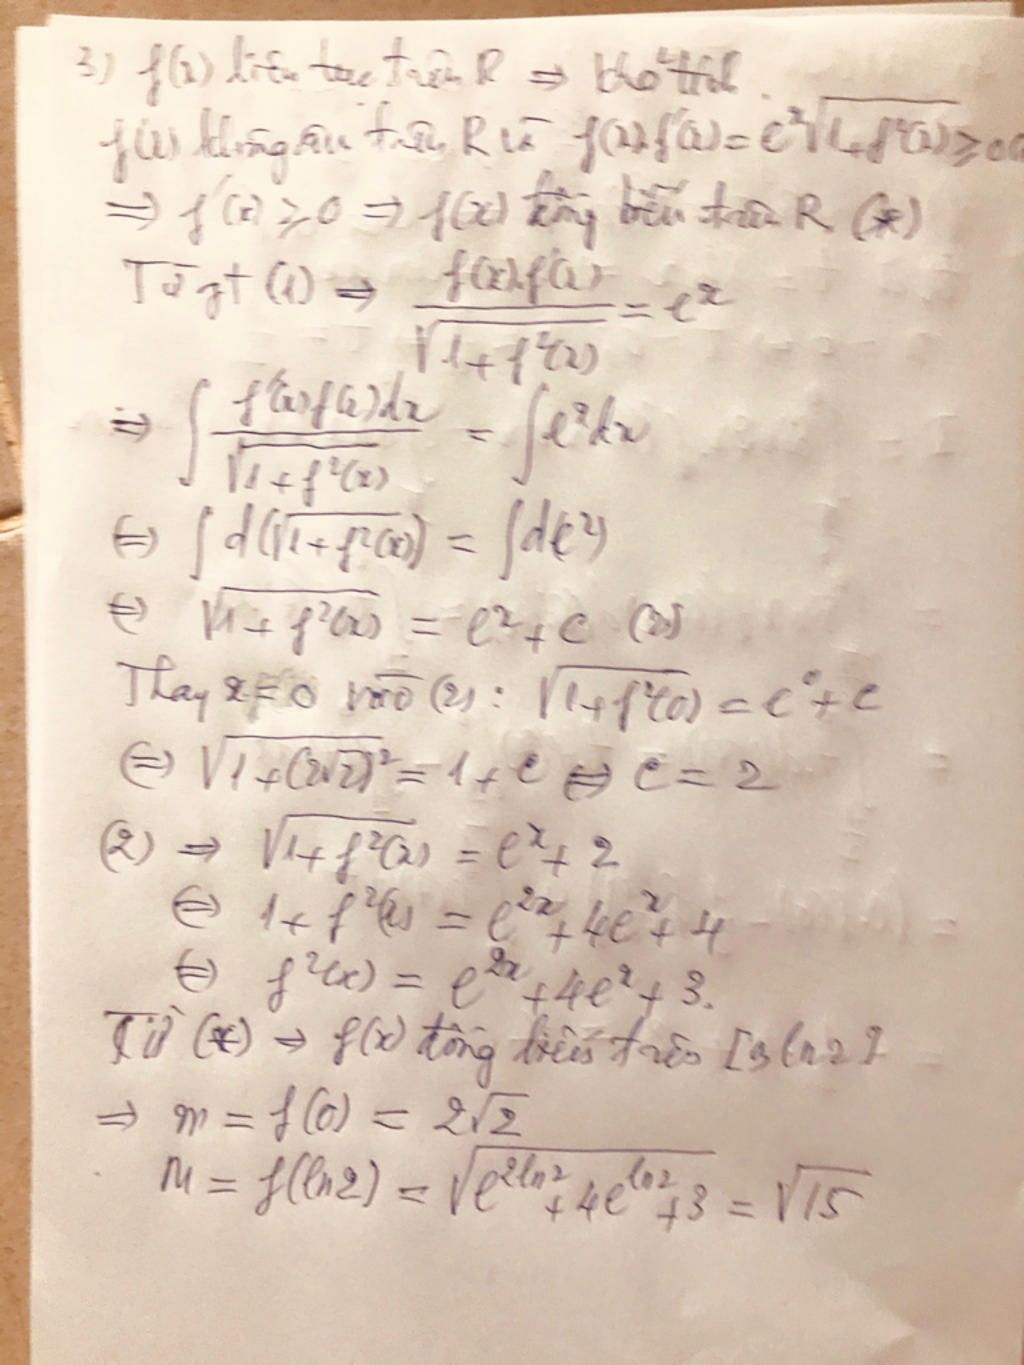 3) f(x) liên tục trên R ⇒ khả tích.
f(x) không âm trên R và f(x).f'(x) = e^x √(1+f²(x)) ≥ 0
⇒ f'(x) ≥ 0 ⇒ f(x) đồng biến trên R (*)
Từ gt (1) ⇒ f(x).f'(x) / √(1+f²(x)) = e^x
⇒ ∫ f'(x)f(x)dx / √(1+f²(x)) = ∫ e^x dx
⇔ ∫ d(√(1+f²(x))) = ∫ d(e^x)
⇔ √(1+f²(x)) = e^x + C (2)
Thay x = 0 vào (2): √(1+f²(0)) = e^0 + C
⇔ √(1+(2√2)²) = 1 + C ⇔ C = 2
(2) ⇒ √(1+f²(x)) = e^x + 2
⇔ 1 + f²(x) = e^2x + 4e^x + 4
⇔ f²(x) = e^2x + 4e^x + 3.
Từ (*) ⇒ f(x) đồng biến trên [0, ln2]
⇒ m = f(0) = 2√2
M = f(ln2) = √(e^2ln2 + 4e^ln2 + 3) = √15